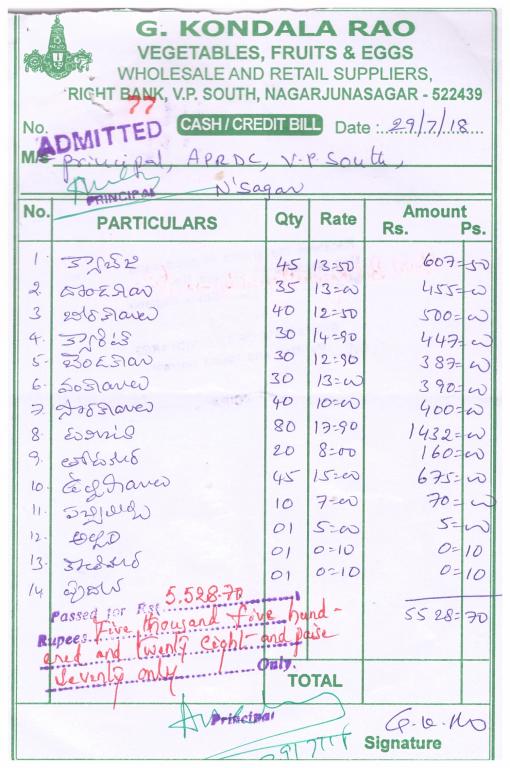 G. KONDALA RAO
VEGETABLES, FRUITS & EGGS
WHOLESALE AND RETAIL SUPPLIERS,
RIGHT BANK, V.P. SOUTH, NAGARJUNASAGAR - 522439
No. 77 CASH / CREDIT BILL Date : 29/7/18
ADMITTED
M/s principal, APRDC, V.P South,
N'Sagar
PRINCIPAL
No. PARTICULARS Qty Rate Amount
Rs. Ps.
1. క్యాబేజి 45 13=50 607=50
2. దొండకాయ 35 13=00 455=00
3. బీరకాయలు 40 12=50 500=00
4. క్యారెట్ 30 14=90 447=00
5. బెండకాయ 30 12=90 387=00
6. వంకాయలు 30 13=00 390=00
7. సొరకాయలు 40 10=00 400=00
8. టమాట 80 17=90 1432=00
9. తోటకూర 20 8=00 160=00
10. ఉల్లిపాయలు 45 15=00 675=00
11. పచ్చిమిర్చి 10 7=00 70=00
12. అల్లం 01 5=00 5=00
13. కొతిమీర 01 0=10 0=10
14 పుదీన 01 0=10 0=10
5528=70
Passed for Rs. 5.528-70
Rupees Five thousand five hund-
ered and twenty eight and paise
seventy only Only.
TOTAL
Principal
Signature